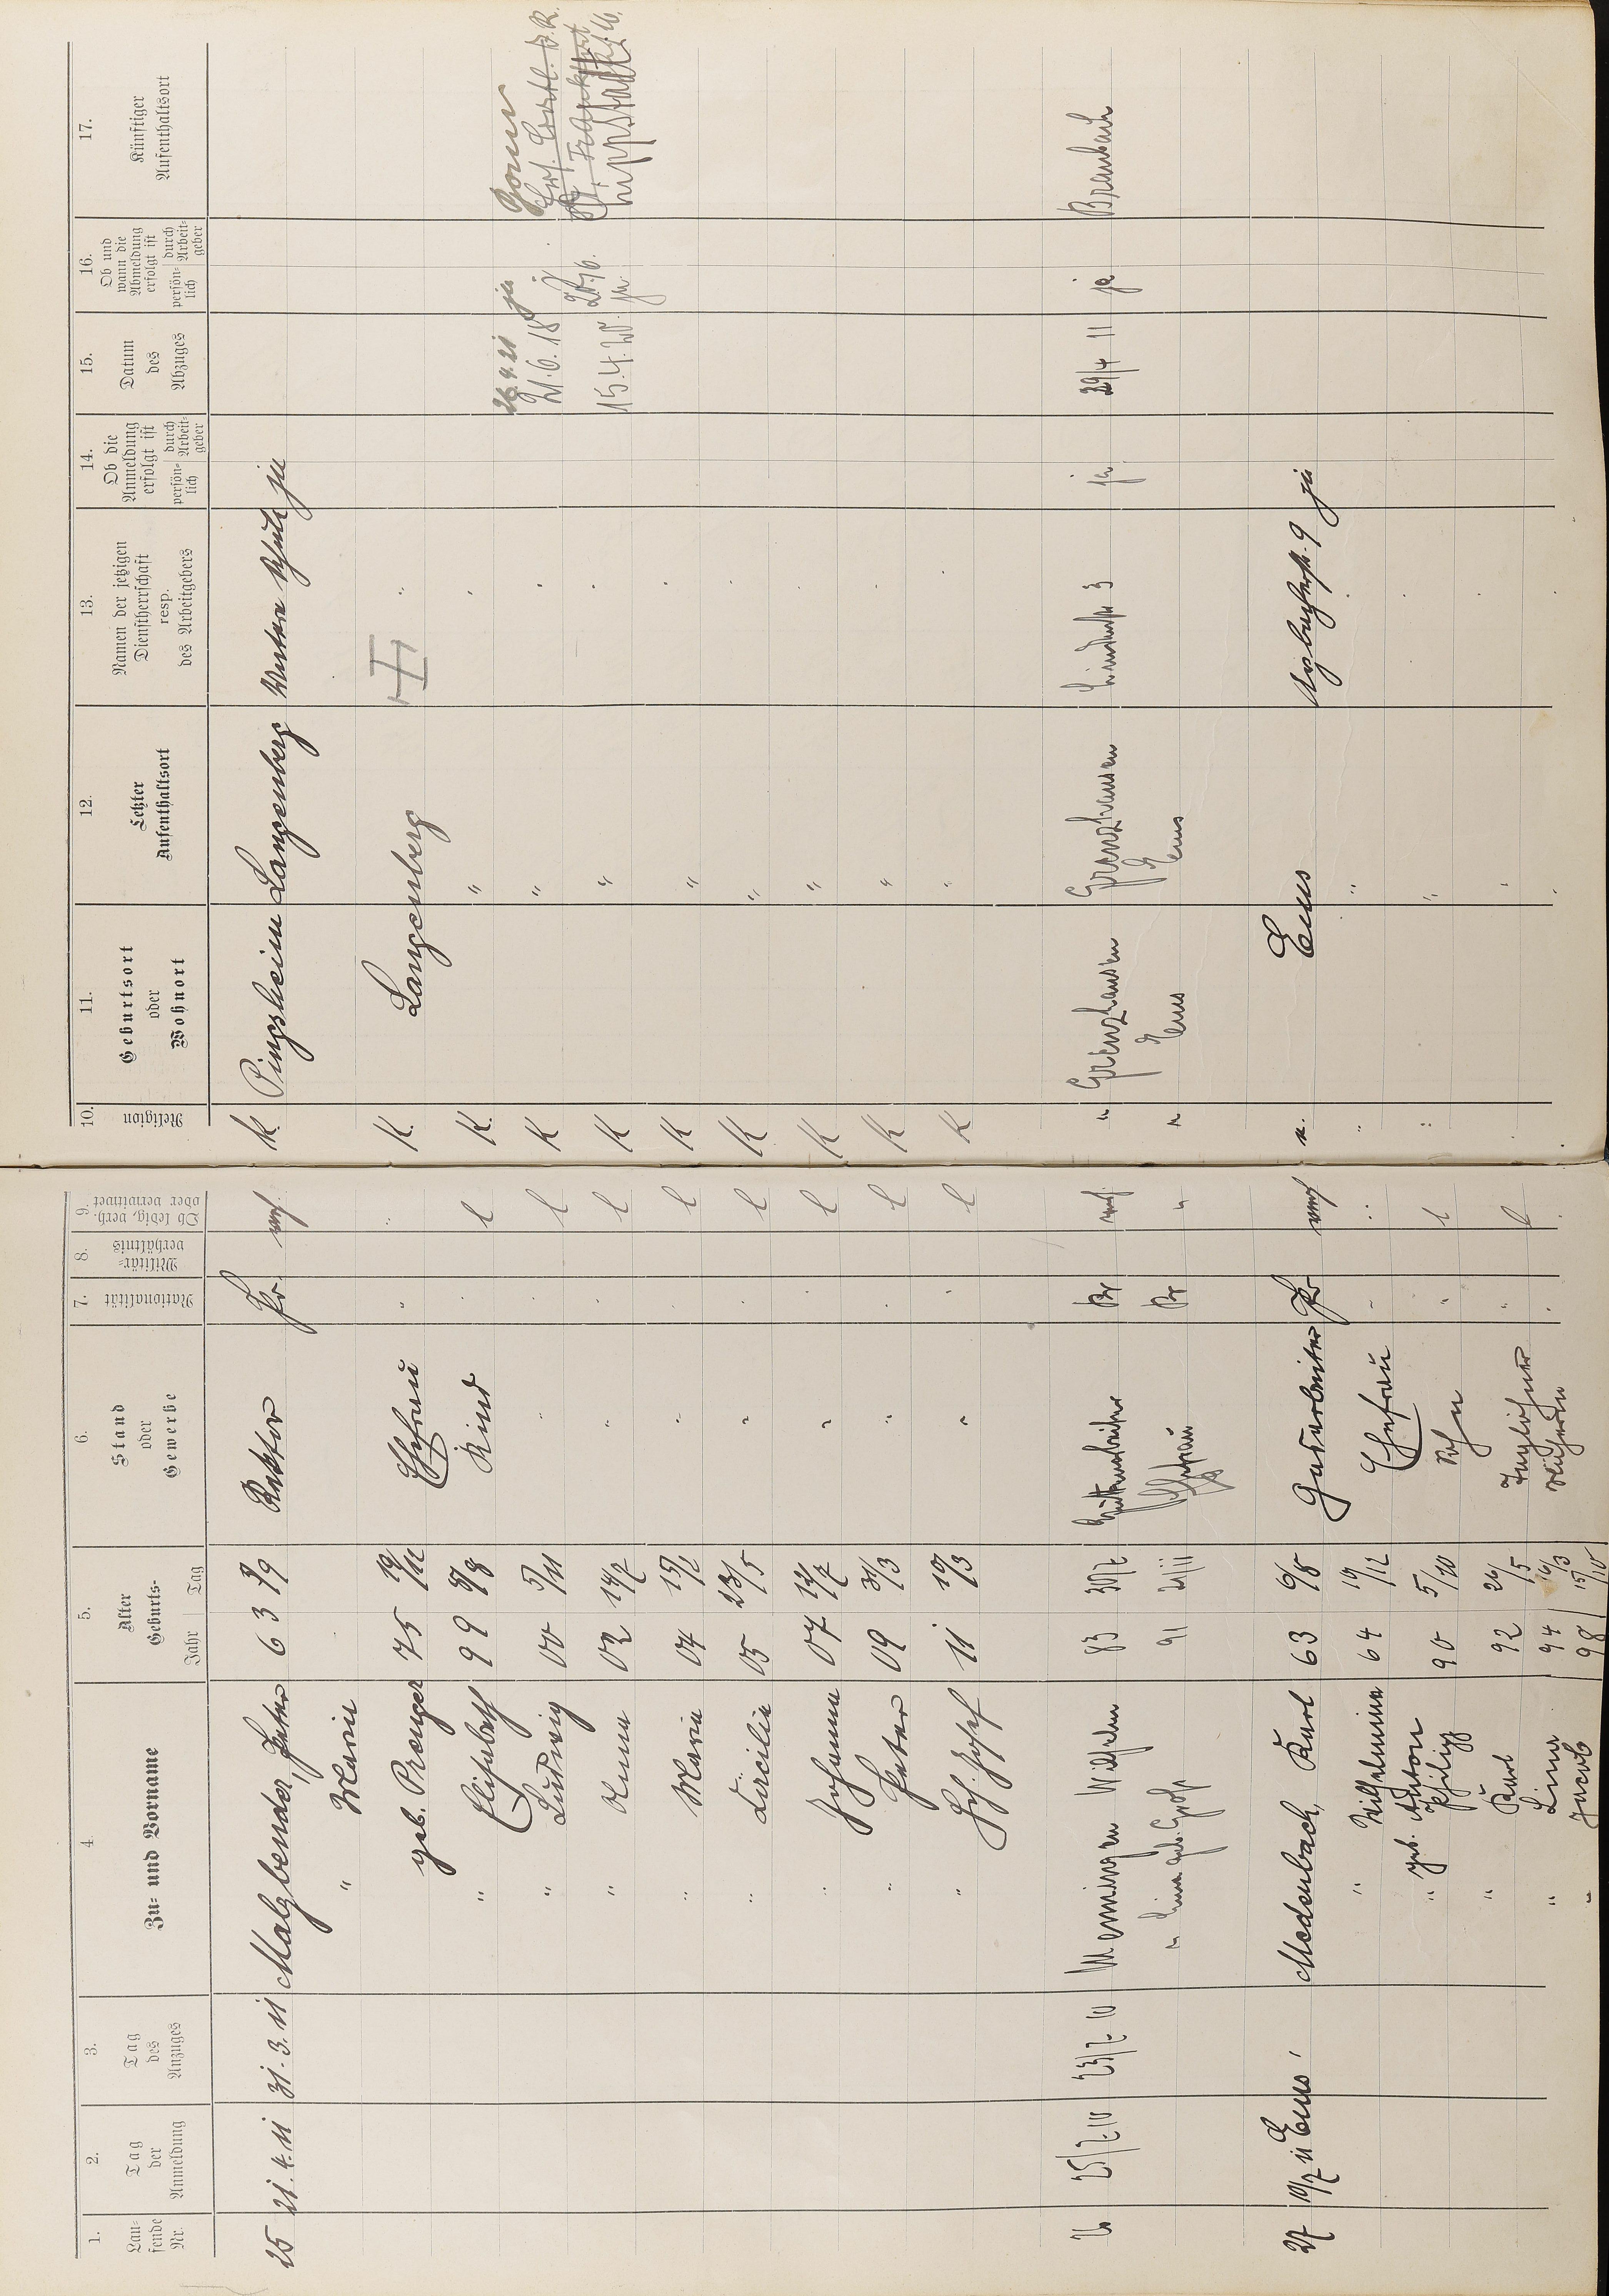 1. Laufende Nr.
2. Tag der Anmeldung
3. Tag des Anzuges
4. Zu- und Vorname
5. Alter Geburts- Jahr Tag
6. Stand oder Gewerbe
7. Nationalität
8. Militärverhältnis
9. Ob ledig, verh. oder verwitwet
10. Religion
11. Geburtsort oder Wohnort
12. Letzter Aufenthaltsort
13. Namen der jetzigen Dienstherrschaft resp. des Arbeitgebers
14. Ob die Anmeldung erfolgt ist persönlich durch Arbeitgeber
15. Datum des Abzuges
16. Ob und wann die Abmeldung erfolgt ist persönlich durch Arbeitgeber
17. Künftiger Aufenthaltsort
25 21.4.11 31.3.11 Malzbender, Peter 63 Rektor Pr. verh k. Pingsheim Langenberg ja
" Maria
geb. Praenger 75 19/11 Ehefrau " " K. Langenberg III
" Elisabeth 99 Kind l K. " 26.4.21 ja Bonn
" Ludwig 00 5/11 " l K " 21.6.18
" Anna 02 14/2 " l K " 15.4.20 ja Lippstadt
" Maria 04 15/2 " l K "
" Cäcilia 05 23/5 " l K "
" Johann 07 12/2 " l K "
" Peter 09 31/3 " l K "
" Josef 11 10/3 " l K "
26 25/7.10 23/7.10 Menningen Wilhelm 83 30/7 Pr verh " Grenzhausen Grenzhausen Lindenstr 3 ja 29/4 11 ja Braubach
" Lina geb. Groß 91 21/11 Ehefrau Pr " " Ems Ems
27 10/7 11 Ems Medenbach, Karl 63 6/8 Gasarbeiter Pr verh Ems 9 ja
" Wilhelmine 64 19/12 Ehefrau
geb. Anton
" Philipp 90 5/10 Sohn l
" Karl 92 26/5 Taglöhner l
" Lina 94 16/3
" Jacob 98 15/10